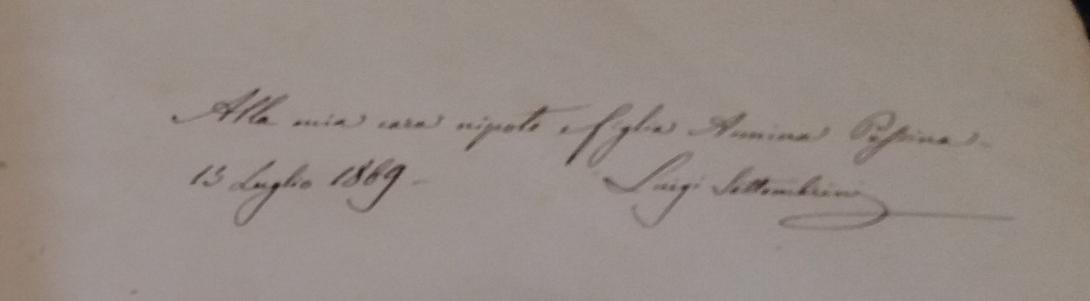 Alla mia cara nipote e figlia Annina Pessina -
13 Luglio 1869 - Luigi Settembrini